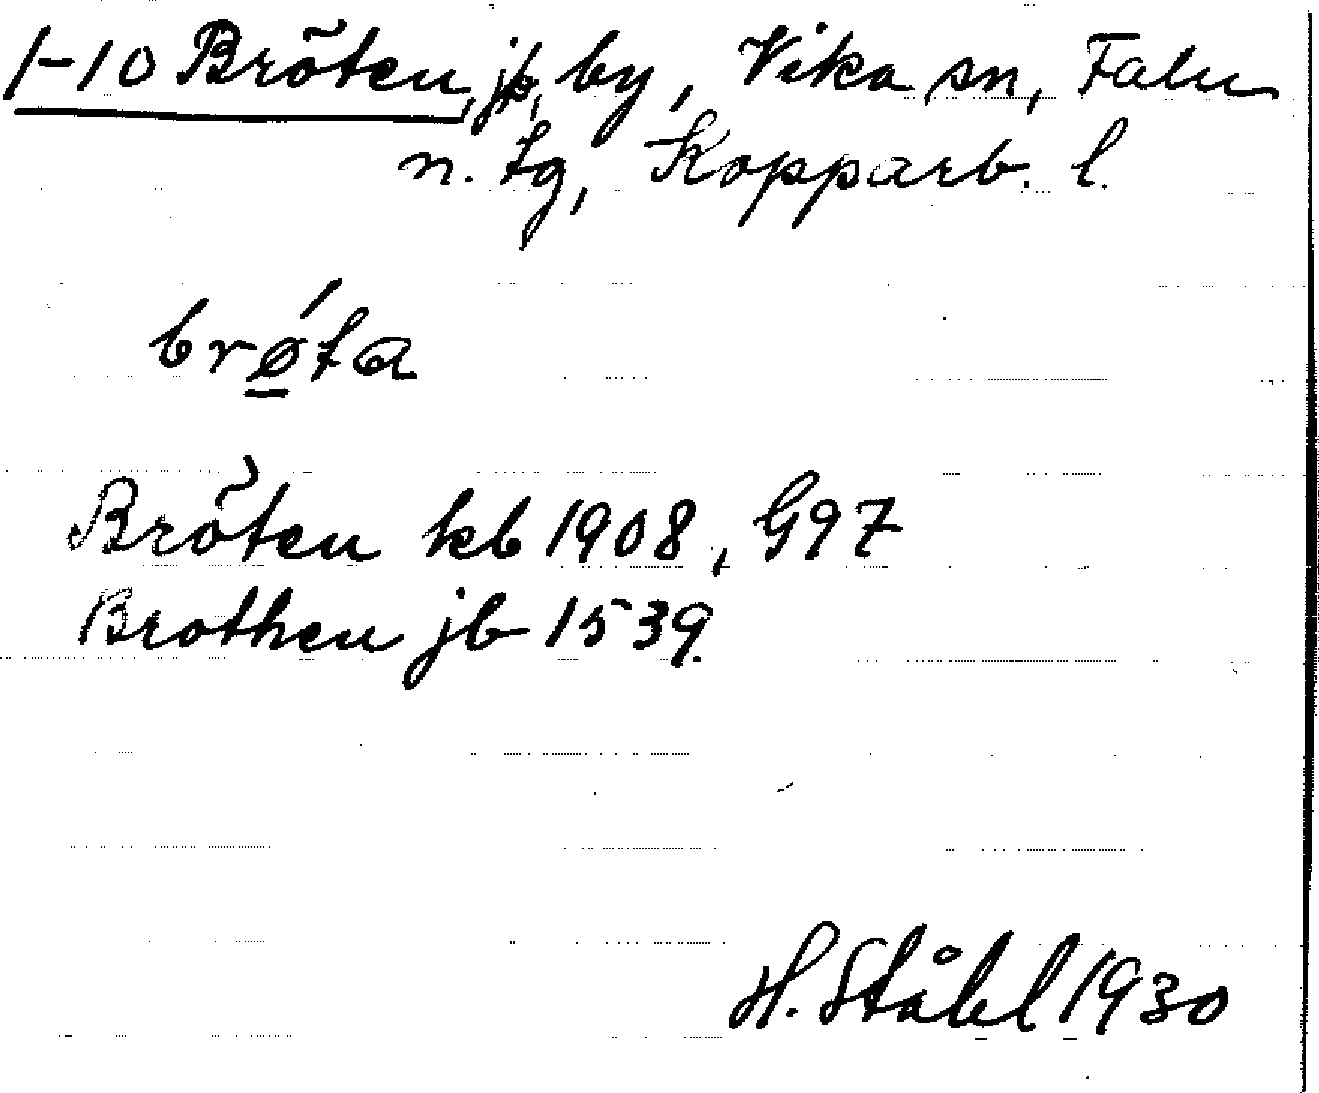 1-10 Bröten, jb, by, Vika sn, Falu
n. tg, Kopparb. l.
brǿ̲ta
Bröten kb 1908, G97
Brothen jb 1539.
H. Ståhl 1930